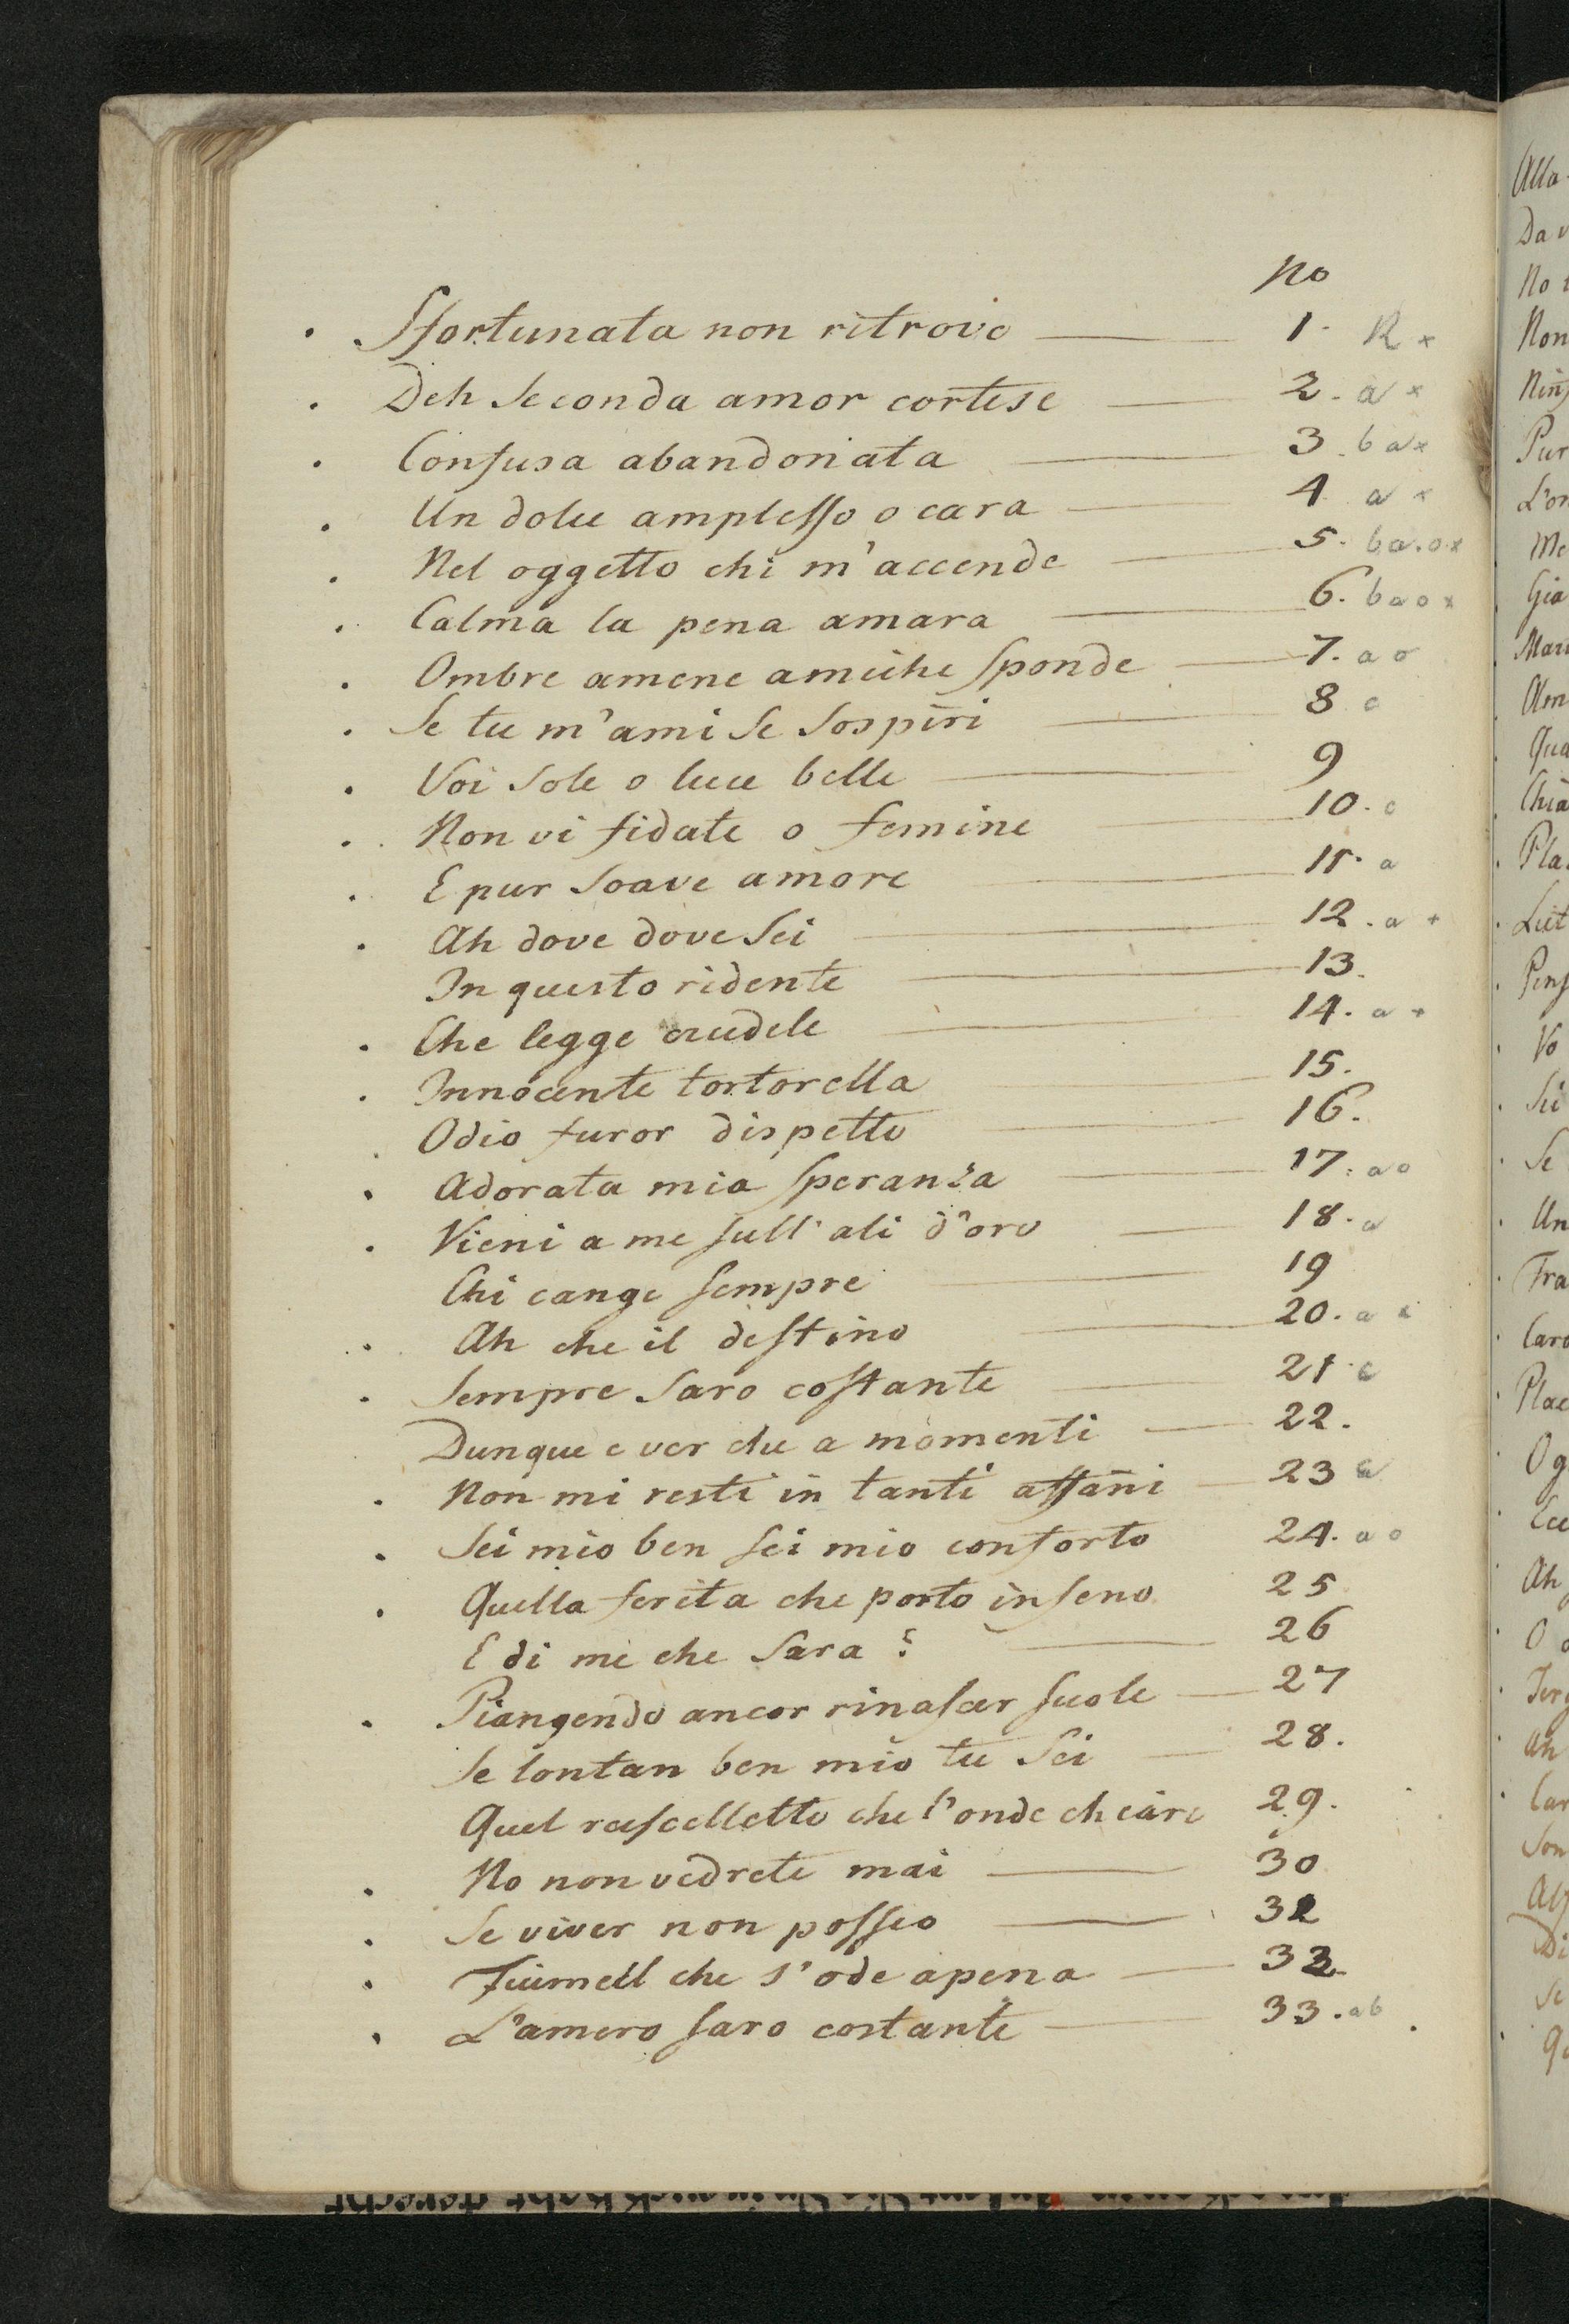 No
Sfortunata non ritrovo 1. R x
Deh Seconda amor cortese 2. a x
Confusa abandonata 3. b a x
Un dolce amplesso o cara 4 a x
Nel oggetto chi m'accende 5. b a. o. x
Calma la pena amara 6. b a o x
Ombre amene amiche Sponde 7. a o
Se tu m'ami Se Sospiri 8 c
Voi Sole o luce belle 9
Non vi fidate o femine 10. c
E pur Soave amore 11. a
Ah dove dove Sei 12. a +
In questo ridente 13.
Che legge crudele 14. a +
Innocente tortorella 15.
Odio furor dispetto 16.
Adorata mia Speranza 17. a o
Vieni a me sull'ali d'oro 18. a
Chi cange Sempre 19
Ah che il destino 20. a x
Sempre Saro costante 21. c
Dunque e ver che a momenti 22.
Non mi resti in tanti affani 23 a
Sei mio ben Sei mio conforto 24. a o
Quella ferita che porto in Seno 25
E di me che Sara? 26
Piangendo ancor rinascer suole 27
Se lontan ben mio tu Sei 28.
Quel ruscelletto che l'onde chiare 29.
No non vedrete mai 30
Se viver non posso
Fiumell che s'ode apena
L'amero saro costante 33. a b
Alla
Da v
No
Non
Pur
L'on
Gia
Mari
Qua
Chia
Pla
Pens
Vo
Se
Un
Fra
Caro
Plac
Ah
Ah
Car
Son
Se